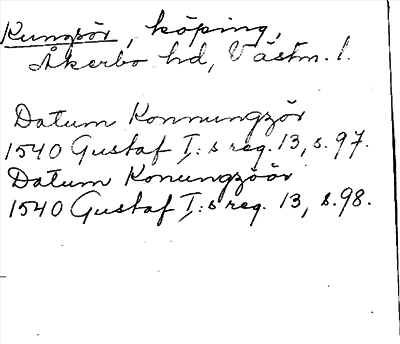 Kungsör, köping,
Åkerbo hd, Västm. l.
Datum Konnungzör
1540 Gustaf I:s reg. 13, s. 97.
Datum Konungzöör
1540 Gustaf I:s reg. 13, s. 98.